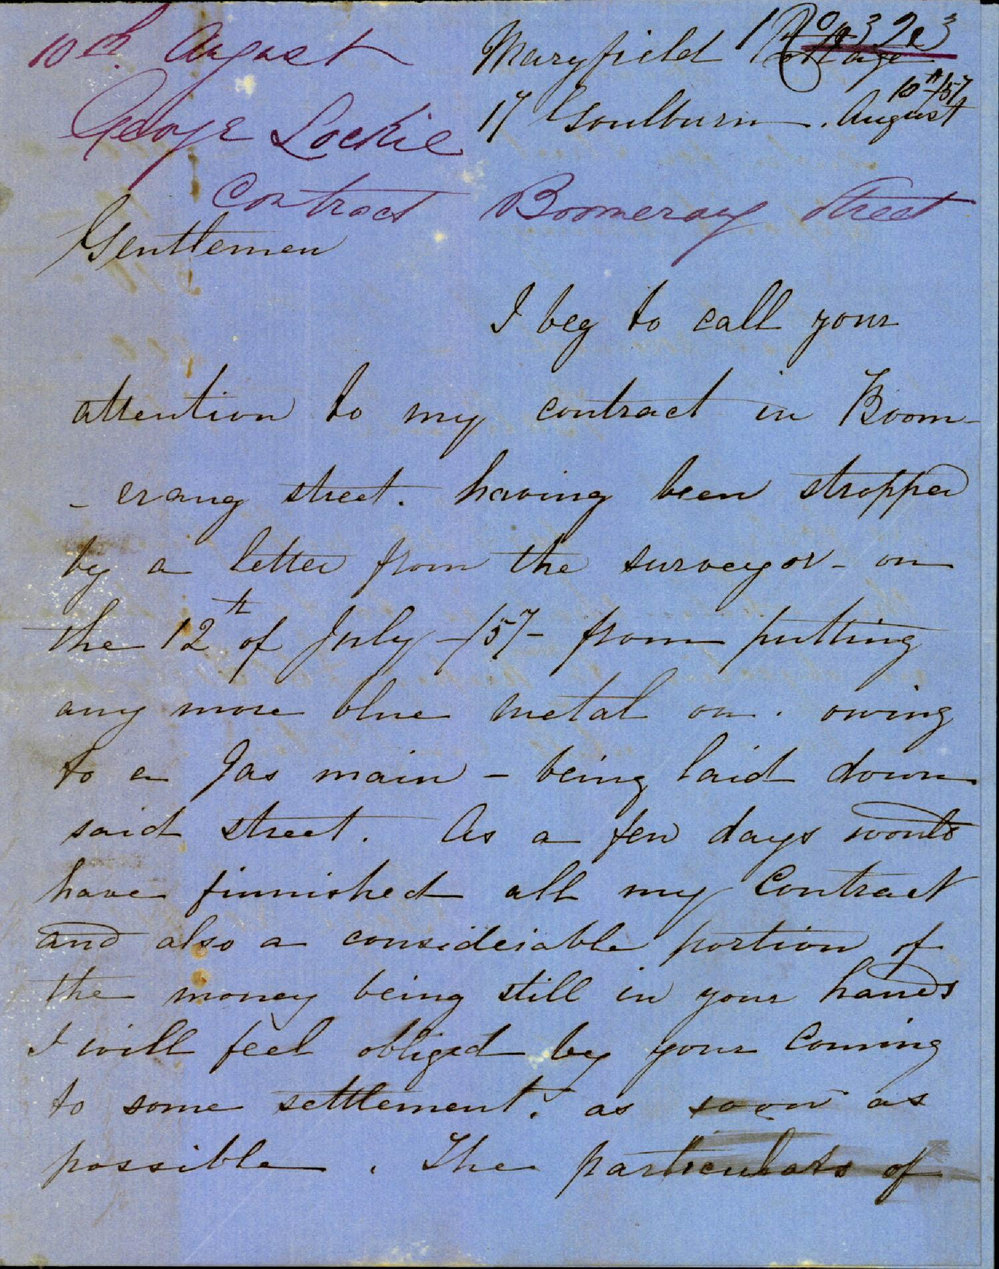 10th August
George Lockie
Contract Boomerang Street
Maryfield Cottage
10th/57
17 Goulburn. August
Gentlemen
I beg to call your
attention to my contract in Boom-
- erang street. having been stropped
by a letter from the surveyor - on
the 12th of July - /57 - from putting
any more blue metal on. owing
to a Gas main - being laid down
said street. As a few days would
have finnished all my Contract
and also a considerable portion of
the money being still in your hands
I will feel obliged by your Coming
to some settlement. as soon as
possible. The particulars of